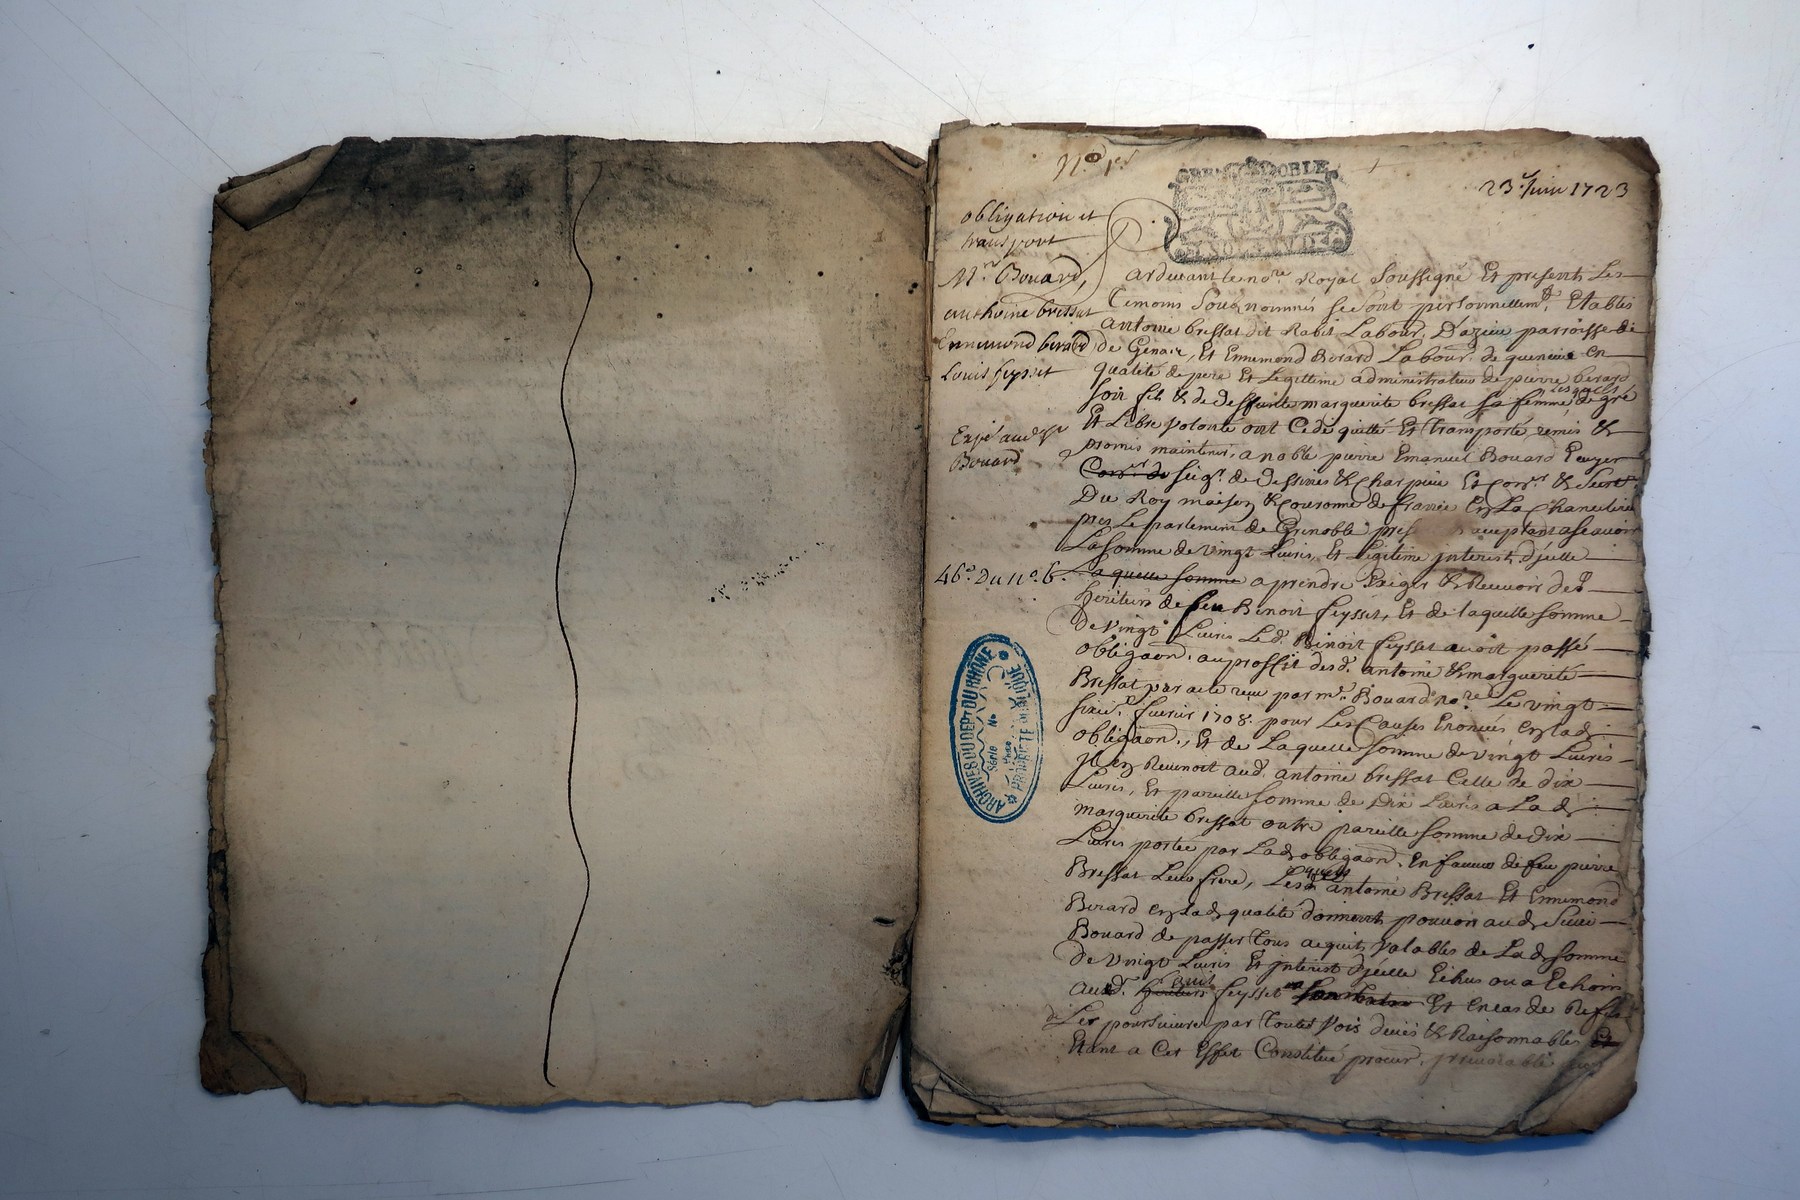 N.o 1.er
23.e Juin 1723
GRENOBLE
obligation et
transport
Mr. Bouard,
anthoine bressat
Ennemond birard
Louis feysset
Expé aud sr
Bouard
46.e du n.o 6.
Pardevant le no.re Royal Soussigné Et presents Les
temoins Sousnommés se sont personnellem.t Etablis
antoine bressat dit Rabit Labour. D'azieu parroisse de
de Genas, Et Ennemond Birard Labour. de quenieu en
qualité de pere Et Legittime administrateur de pierre berard
son fils & de deffunte marguerite bressat sa femme lesquels de gré
Et Libre volonté ont Cedé quitté Et transporté, remis &
promis maintenir, a noble pierre Emanuel Bouard Ecuyer
seig.r de dessines & Charpieu Et Con.er & Secret.
Du Roy maison & Couronne de france En La Chancelerie
pres Le parlement de Grenoble acceptant a scavoir
La Somme de vingt Livres, Et Legitime interest d'jcelle
La quelle somme a prendre Exiger & Recevoir des
heritiers de feu Benoit feysset, Et de laquelle somme
de vingt Livres Le d. Benoit feysset avoit passé
obligaon. au proffit desd. antoine & marguerite
Bressat par acte receu par m.e Bouard no.re Le vingt
fevrier 1708. pour Les Causes Enoncées En lad.
obligaon., Et de La quelle somme de vingt Livres
jl en Revenoit aud. antoine bressat Celle de dix
Livres, Et pareille somme de Dix Livres a La d.
marguerite bressat outre pareille somme de dix
Livres portée par Lad. obligaon. En faveur de feu pierre
Bressat Leur frere, Lesquels antoine Bressat Et Ennemond
Birard En lad. qualité donnent pouvoir aud. Sieur
Bouard de passer tous acquits valables de La d. somme
de vingt Livres Et jnterest d'jcelle Echus ou a Echoir
aud. feysset Et En cas de Reffus
de Les poursuivre par toutes voix deues & Raisonnables
Etant a Cet Effet Constitué procur. jrrevocable
ARCHIVES DU DEPT DU RHÔNE
Série No
PROPRIETE PUBLIQUE